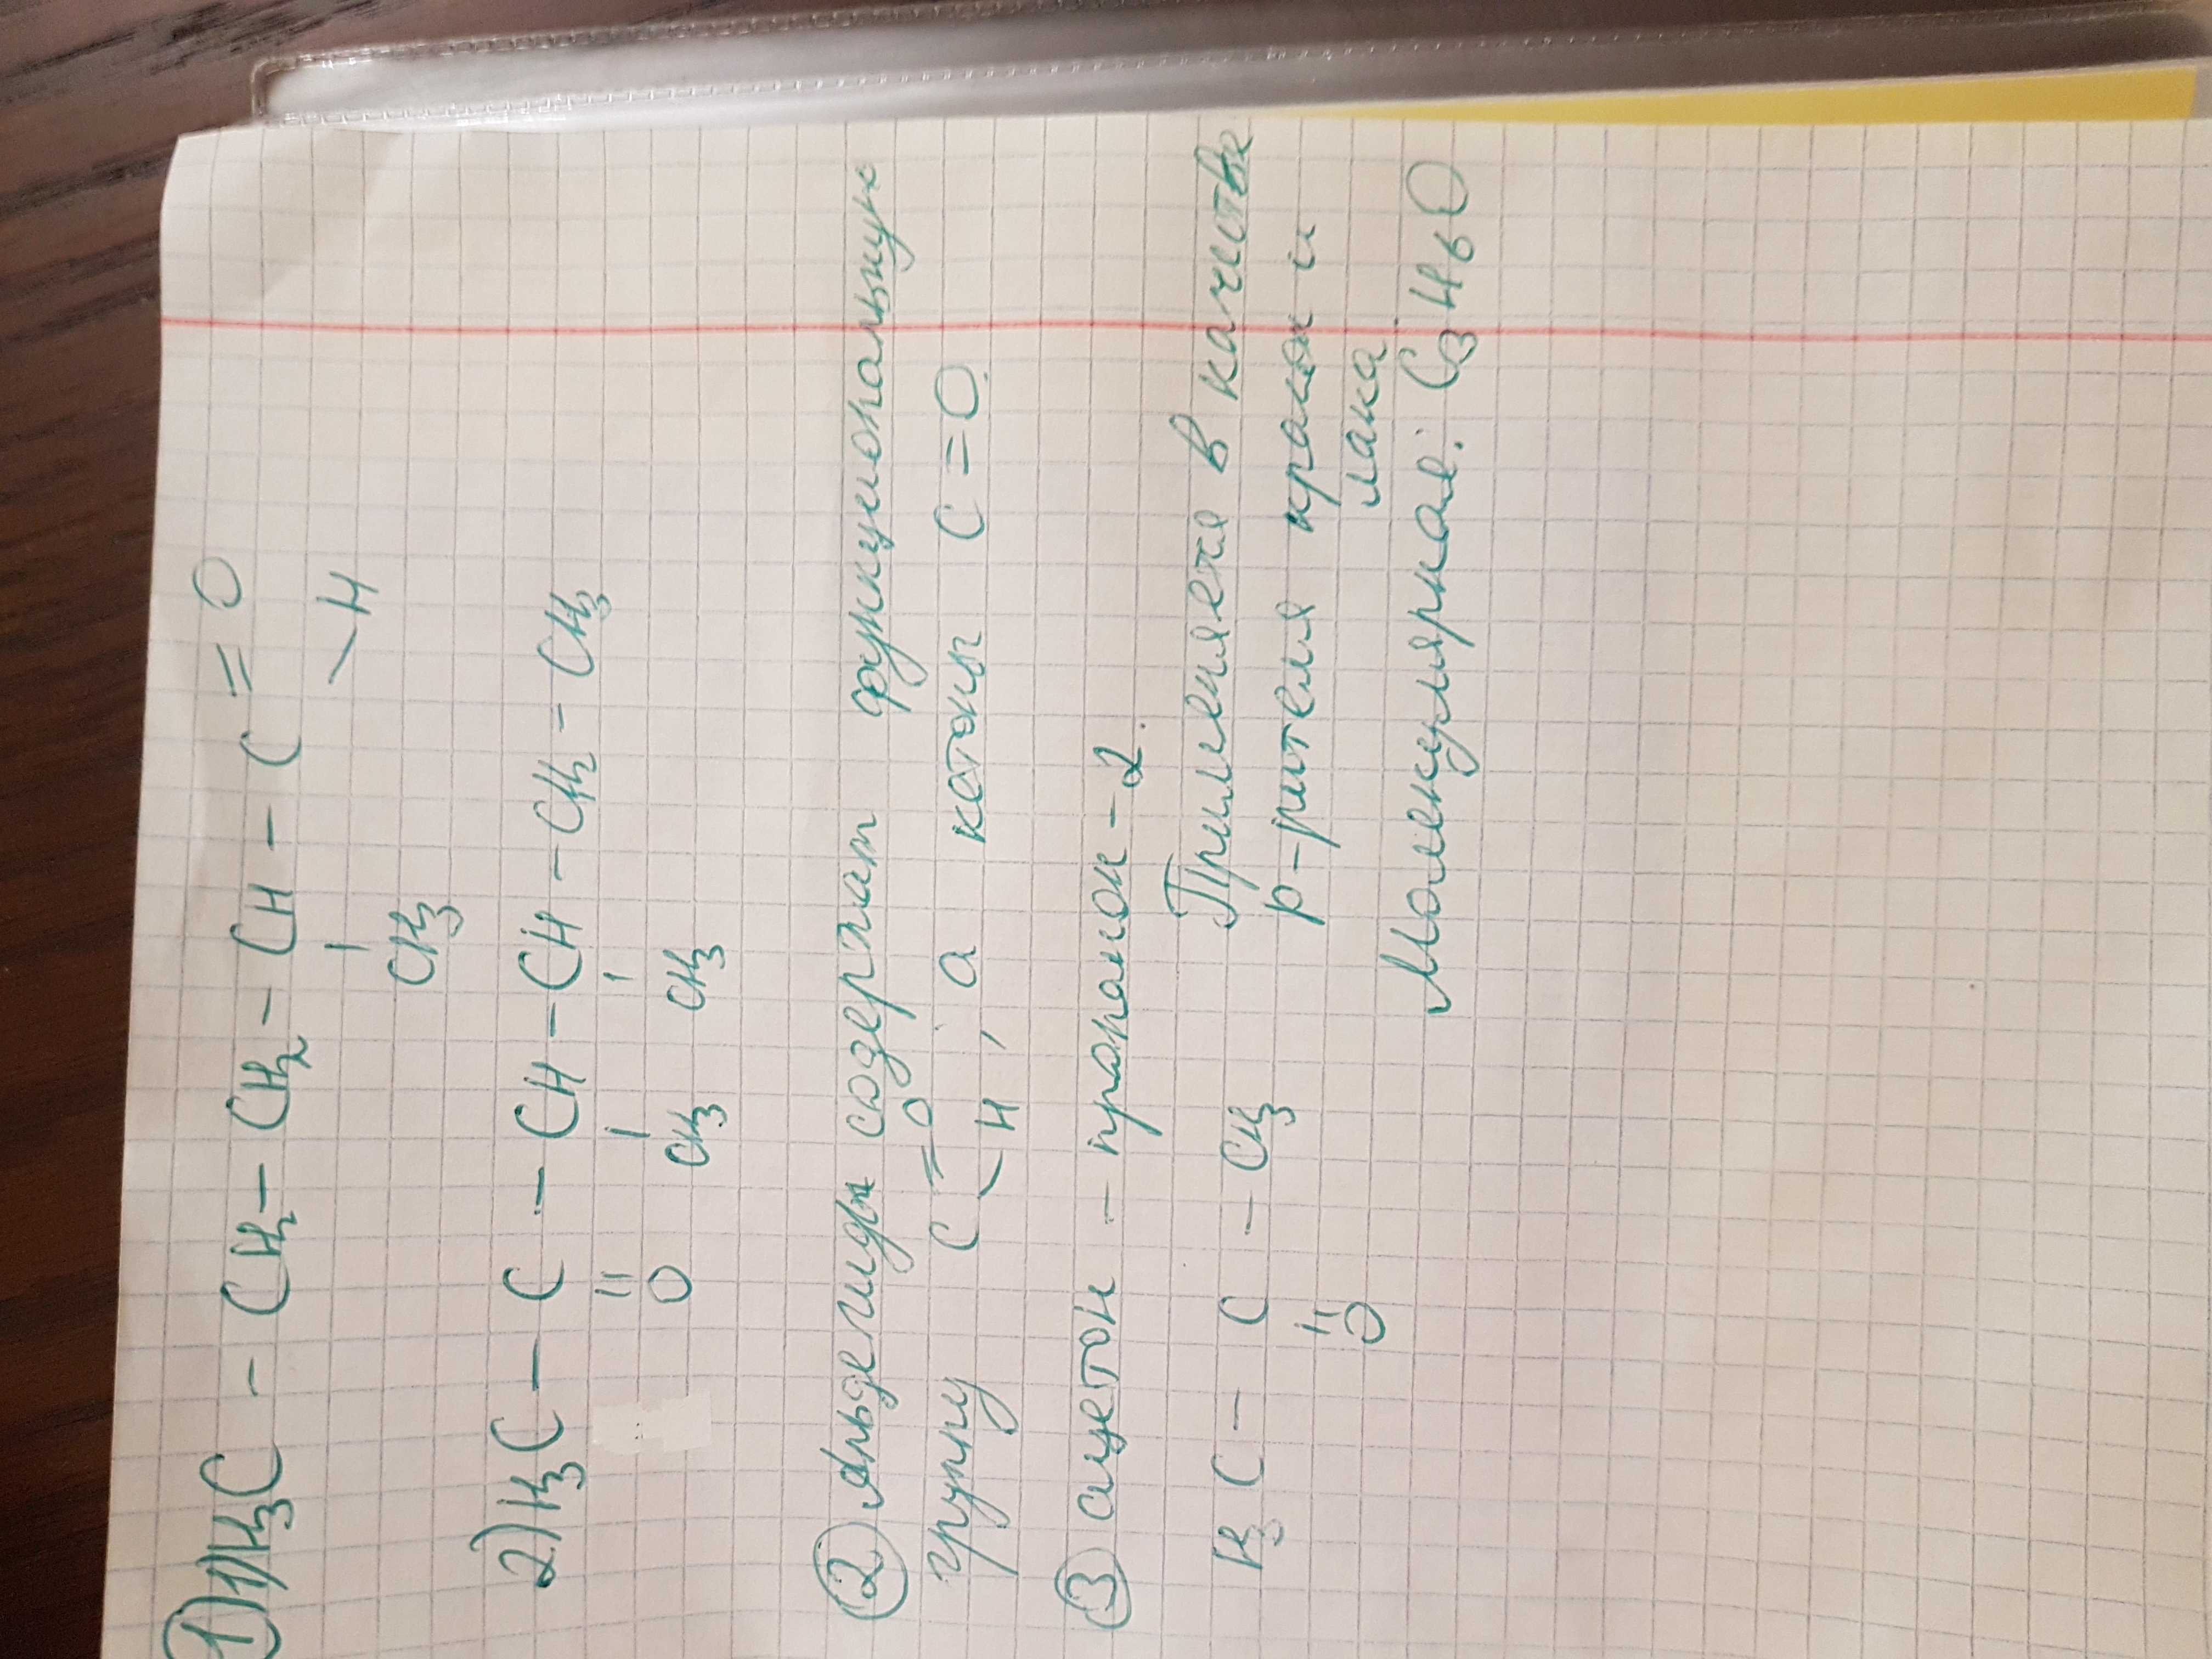 ① 1) H₃C - CH₂ - CH₂ - CH - C = O
\ H
CH₃
2) H₃C - C - CH - CH - CH₂ - CH₃
O CH₃ CH₃
② Альдегиды содержат функциональную
групу C = O
\ H , а кетоны C = O.
③ ацетон - пропанон - 2.
H₃C - C - CH₃ Применяетя в качестве
O р-рителя краски и
лака.
Молекулярная: C₃H₆O